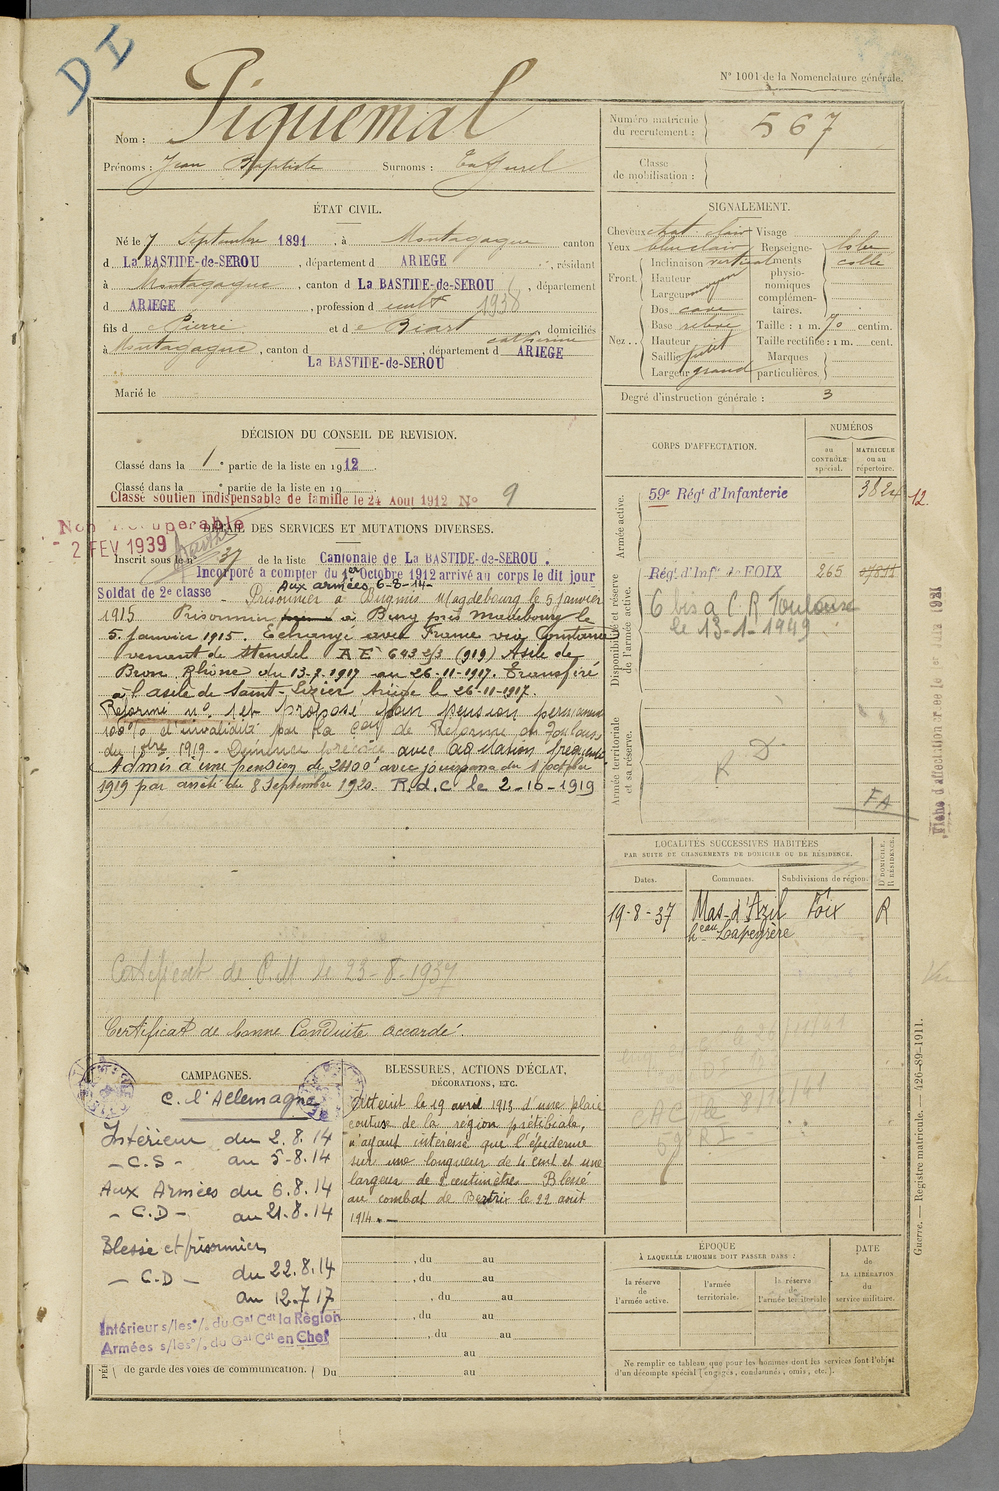 DI
N° 1001 de la Nomenclature générale.
Nom : Piquemal
Prénoms : Jean Baptiste Surnoms :
Numéro matricule du recrutement : 567
Classe de mobilisation :
ÉTAT CIVIL.
Né le 7 Septembre 1891, à Montagagne canton
d La BASTIDE-de-SEROU, département d ARIEGE, résidant
à Montagagne, canton d La BASTIDE-de-SEROU, département
d ARIEGE, profession d cultr 1938
fils d e Pierre et d e Biart catherine domiciliés
à Montagagne, canton d La BASTIDE-de-SEROU, département d ARIEGE
Marié le
SIGNALEMENT.
Cheveux chat clair Visage
Yeux bleu clair Renseignements physionomiques complémentaires.
Front. Inclinaison vertical
Hauteur
Largeur moyen
Nez . . Dos cave
Base relevé Taille : 1 m. 70 centim.
Hauteur Taille rectifiée : 1 m. cent.
Saillie petit Marques
Largeur grand particulières.
Degré d'instruction générale : 3
DÉCISION DU CONSEIL DE REVISION.
Classé dans la 1e partie de la liste en 1912.
Classé dans la e partie de la liste en 19
Classé soutien indispensable de famille le 24 Aout 1912 No 9
Non récuperable
2 FEV 1939
DÉTAIL DES SERVICES ET MUTATIONS DIVERSES.
Inscrit sous le n° 37 de la liste Cantonale de La BASTIDE-de-SEROU.
Incorporé a compter du 1er Octobre 1912 arrivé au corps le dit jour
Soldat de 2e classe - Aux armées 6-8-14-
Prisonnier à Magdebourg le 5 janvier
1915 Prisonnier à Burg près Madebourg le
5 janvier 1915. Echangé avec France via Constance
venant de Stendel AE 643 2/3 (919) Asile de
Bron Rhône du 13-7-1917 au 26-11-1917. Transféré
à l'asile de Saint-Lizier Ariège le 26-11-1917.
Réformé n° 1 et proposé pour pension permanente
100% d'invalidité par la Con de Réforme de Toulouse
du 1919 - Démence précoce avec agitation fréquente
Admis à une pension de 2400f avec jouissance du 1 octobre
1919 par arrêté du 8 Septembre 1920. R.d.C le 2-10-1919
Certificat de P.M le 23-8-1937
Certificat de bonne Conduite accordé.
CORPS D'AFFECTATION.
NUMÉROS
au CONTRÔLE spécial.
MATRICULE ou au répertoire.
Armée active.
59e Régt d'Infanterie 3824 12.
Disponibilité et réserve de l'armée active.
Régt d'Infie de FOIX 265
6 bis a C.R Toulouse
le 13-1-1949
Armée territoriale et sa réserve.
R D
FA
LOCALITÉS SUCCESSIVES HABITÉES
PAR SUITE DE CHANGEMENTS DE DOMICILE OU DE RÉSIDENCE.
Dates. Communes. Subdivisions de région. D. DOMICILE. R. RÉSIDENCE.
19-8-37 Mas-d'Azil Foix R
heau Lapeyrère
CAMPAGNES.
C. l'Allemagne
Intérieur du 2.8.14
- C.S - au 5-8.14
Aux Armées du 6.8.14
- C.D - au 21.8.14
Blessé et prisonnier
- C.D - du 22.8.14
au 12.7.17
Intérieur s/les °/. du Gal Cdt la Région
Armées s/les °/. du Gal Cdt en Chef
de garde des voies de communication. Du au
BLESSURES, ACTIONS D'ÉCLAT,
DÉCORATIONS, ETC.
Atteint le 19 avril 1913 d'une plaie
contuse de la région prétibiale,
n'ayant intéressé que l'épiderme
sur une longueur de 4 cent et une
largeur de 2 centimètres. Blessé
au combat de Bertrix le 22 août
1914. -
, du au
, du au
, du au
, du au
, du au
au
ÉPOQUE
À LAQUELLE L'HOMME DOIT PASSER DANS :
la réserve de l'armée active.
l'armée territoriale.
la réserve de l'armée territoriale
DATE de LA LIBÉRATION du service militaire.
Ne remplir ce tableau que pour les hommes dont les services font l'objet
d'un décompte spécial (engagés, condamnés, omis, etc.).
Guerre. — Registre matricule. — 426-89-1911.